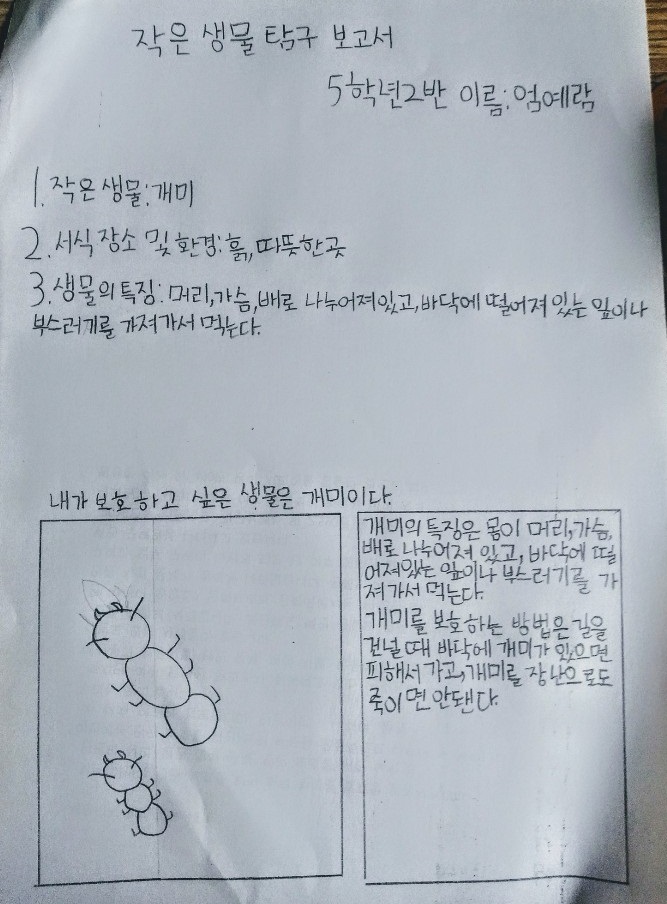 작은 생물 탐구 보고서
5학년2반 이름:엄예람
1. 작은 생물:개미
2. 서식 장소 및 환경:흙,따뜻한곳
3. 생물의 특징: 머리,가슴,배로 나누어져있고,바닥에 떨어져 있는 잎이나
부스러기를 가져가서 먹는다.
내가 보호하고 싶은 생물은 개미이다.
개미의 특징은 몸이 머리,가슴,
배로 나누어져 있고, 바닥에 떨
어져있는 잎이나 부스러기를 가
져가서 먹는다.
개미를 보호하는 방법은 길을
건널 때 바닥에 개미가 있으면
피해서 가고,개미를 장난으로도
죽이면 안됀다.